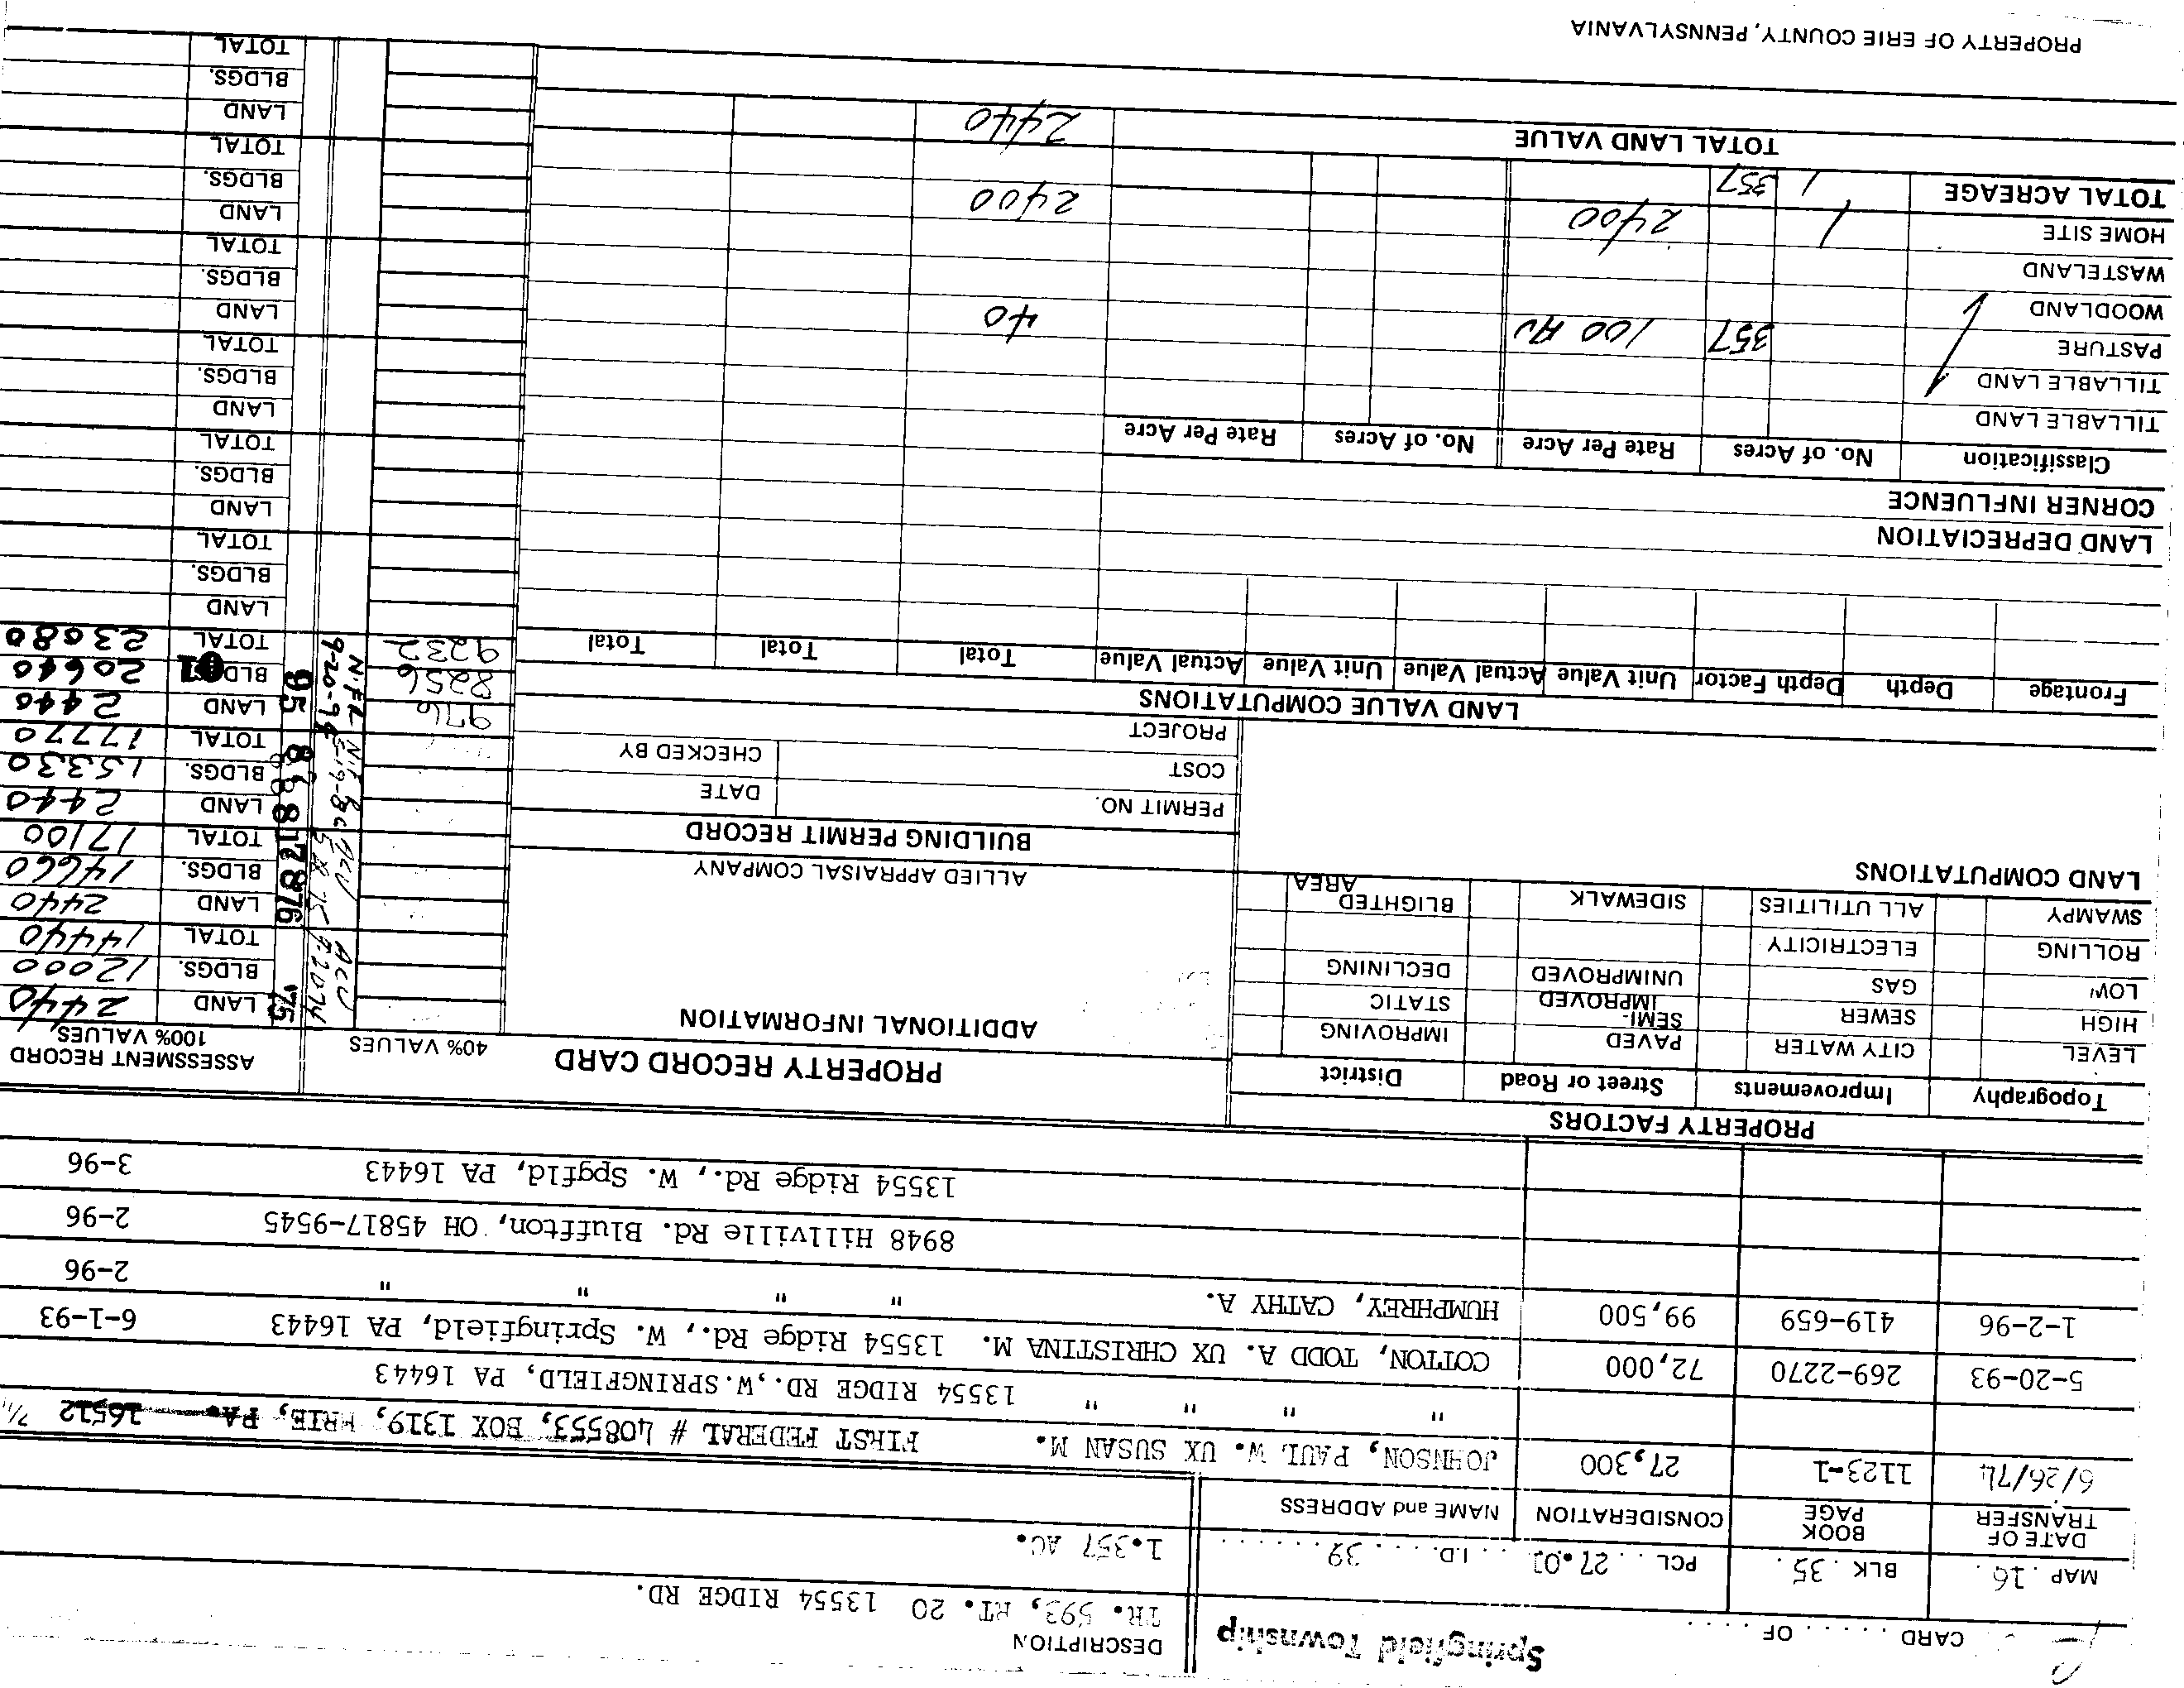 CARD ...... OF .....
Springfield Township
DESCRIPTION
TR. 593, RT. 20 13554 RIDGE RD.
MAP . 16 . BLK . 35 . PCL . . 27.01 . . . I.D. . . . 39 . . . . . .
1.357 AC.
DATE OF TRANSFER BOOK PAGE CONSIDERATION NAME and ADDRESS
6/26/74 1123-1 27,300 JOHNSON, PAUL W. UX SUSAN M. FIRST FEDERAL # 408553, BOX 1319, ERIE, PA. 16512
" " " " 13554 RIDGE RD.,W.SPRINGFIELD, PA 16443
5-20-93 269-2270 72,000 COTTON, TODD A. UX CHRISTINA M. 13554 Ridge Rd., W. Springfield, PA 16443 6-1-93
1-2-96 419-659 99,500 HUMPHREY, CATHY A. " " " " 2-96
8948 Hillville Rd. Bluffton, OH 45817-9545 2-96
13554 Ridge Rd., W. Spgfld, PA 16443 3-96
PROPERTY FACTORS
Topography Improvements Street or Road District
LEVEL CITY WATER PAVED IMPROVING
HIGH SEWER SEMI-IMPROVED STATIC
LOW GAS UNIMPROVED DECLINING
ROLLING ELECTRICITY
SWAMPY ALL UTILITIES SIDEWALK BLIGHTED AREA
LAND COMPUTATIONS
PROPERTY RECORD CARD
ADDITIONAL INFORMATION
ALLIED APPRAISAL COMPANY
BUILDING PERMIT RECORD
PERMIT NO. DATE
COST CHECKED BY
PROJECT
40% VALUES
976
8256
9232
ASSESSMENT RECORD
100% VALUES
'75 LAND 2440
BLDGS. 12000
TOTAL 14440
76 LAND 2440
BLDGS. 14660
TOTAL 17100
LAND 2440
BLDGS. 15330
TOTAL 17770
95 LAND 2440
BLDGS. 20640
TOTAL 23080
LAND
BLDGS.
TOTAL
LAND
BLDGS.
TOTAL
LAND
BLDGS.
TOTAL
LAND
BLDGS.
TOTAL
LAND
BLDGS.
TOTAL
LAND
BLDGS.
TOTAL
LAND VALUE COMPUTATIONS
Frontage Depth Depth Factor Unit Value Actual Value Unit Value Actual Value Total Total Total
LAND DEPRECIATION
CORNER INFLUENCE
Classification No. of Acres Rate Per Acre No. of Acres Rate Per Acre
TILLABLE LAND
TILLABLE LAND
PASTURE 357 100 AV 40
WOODLAND
WASTELAND
HOME SITE 1 2400 2400
TOTAL ACREAGE 1 357
TOTAL LAND VALUE 2440
PROPERTY OF ERIE COUNTY, PENNSYLVANIA